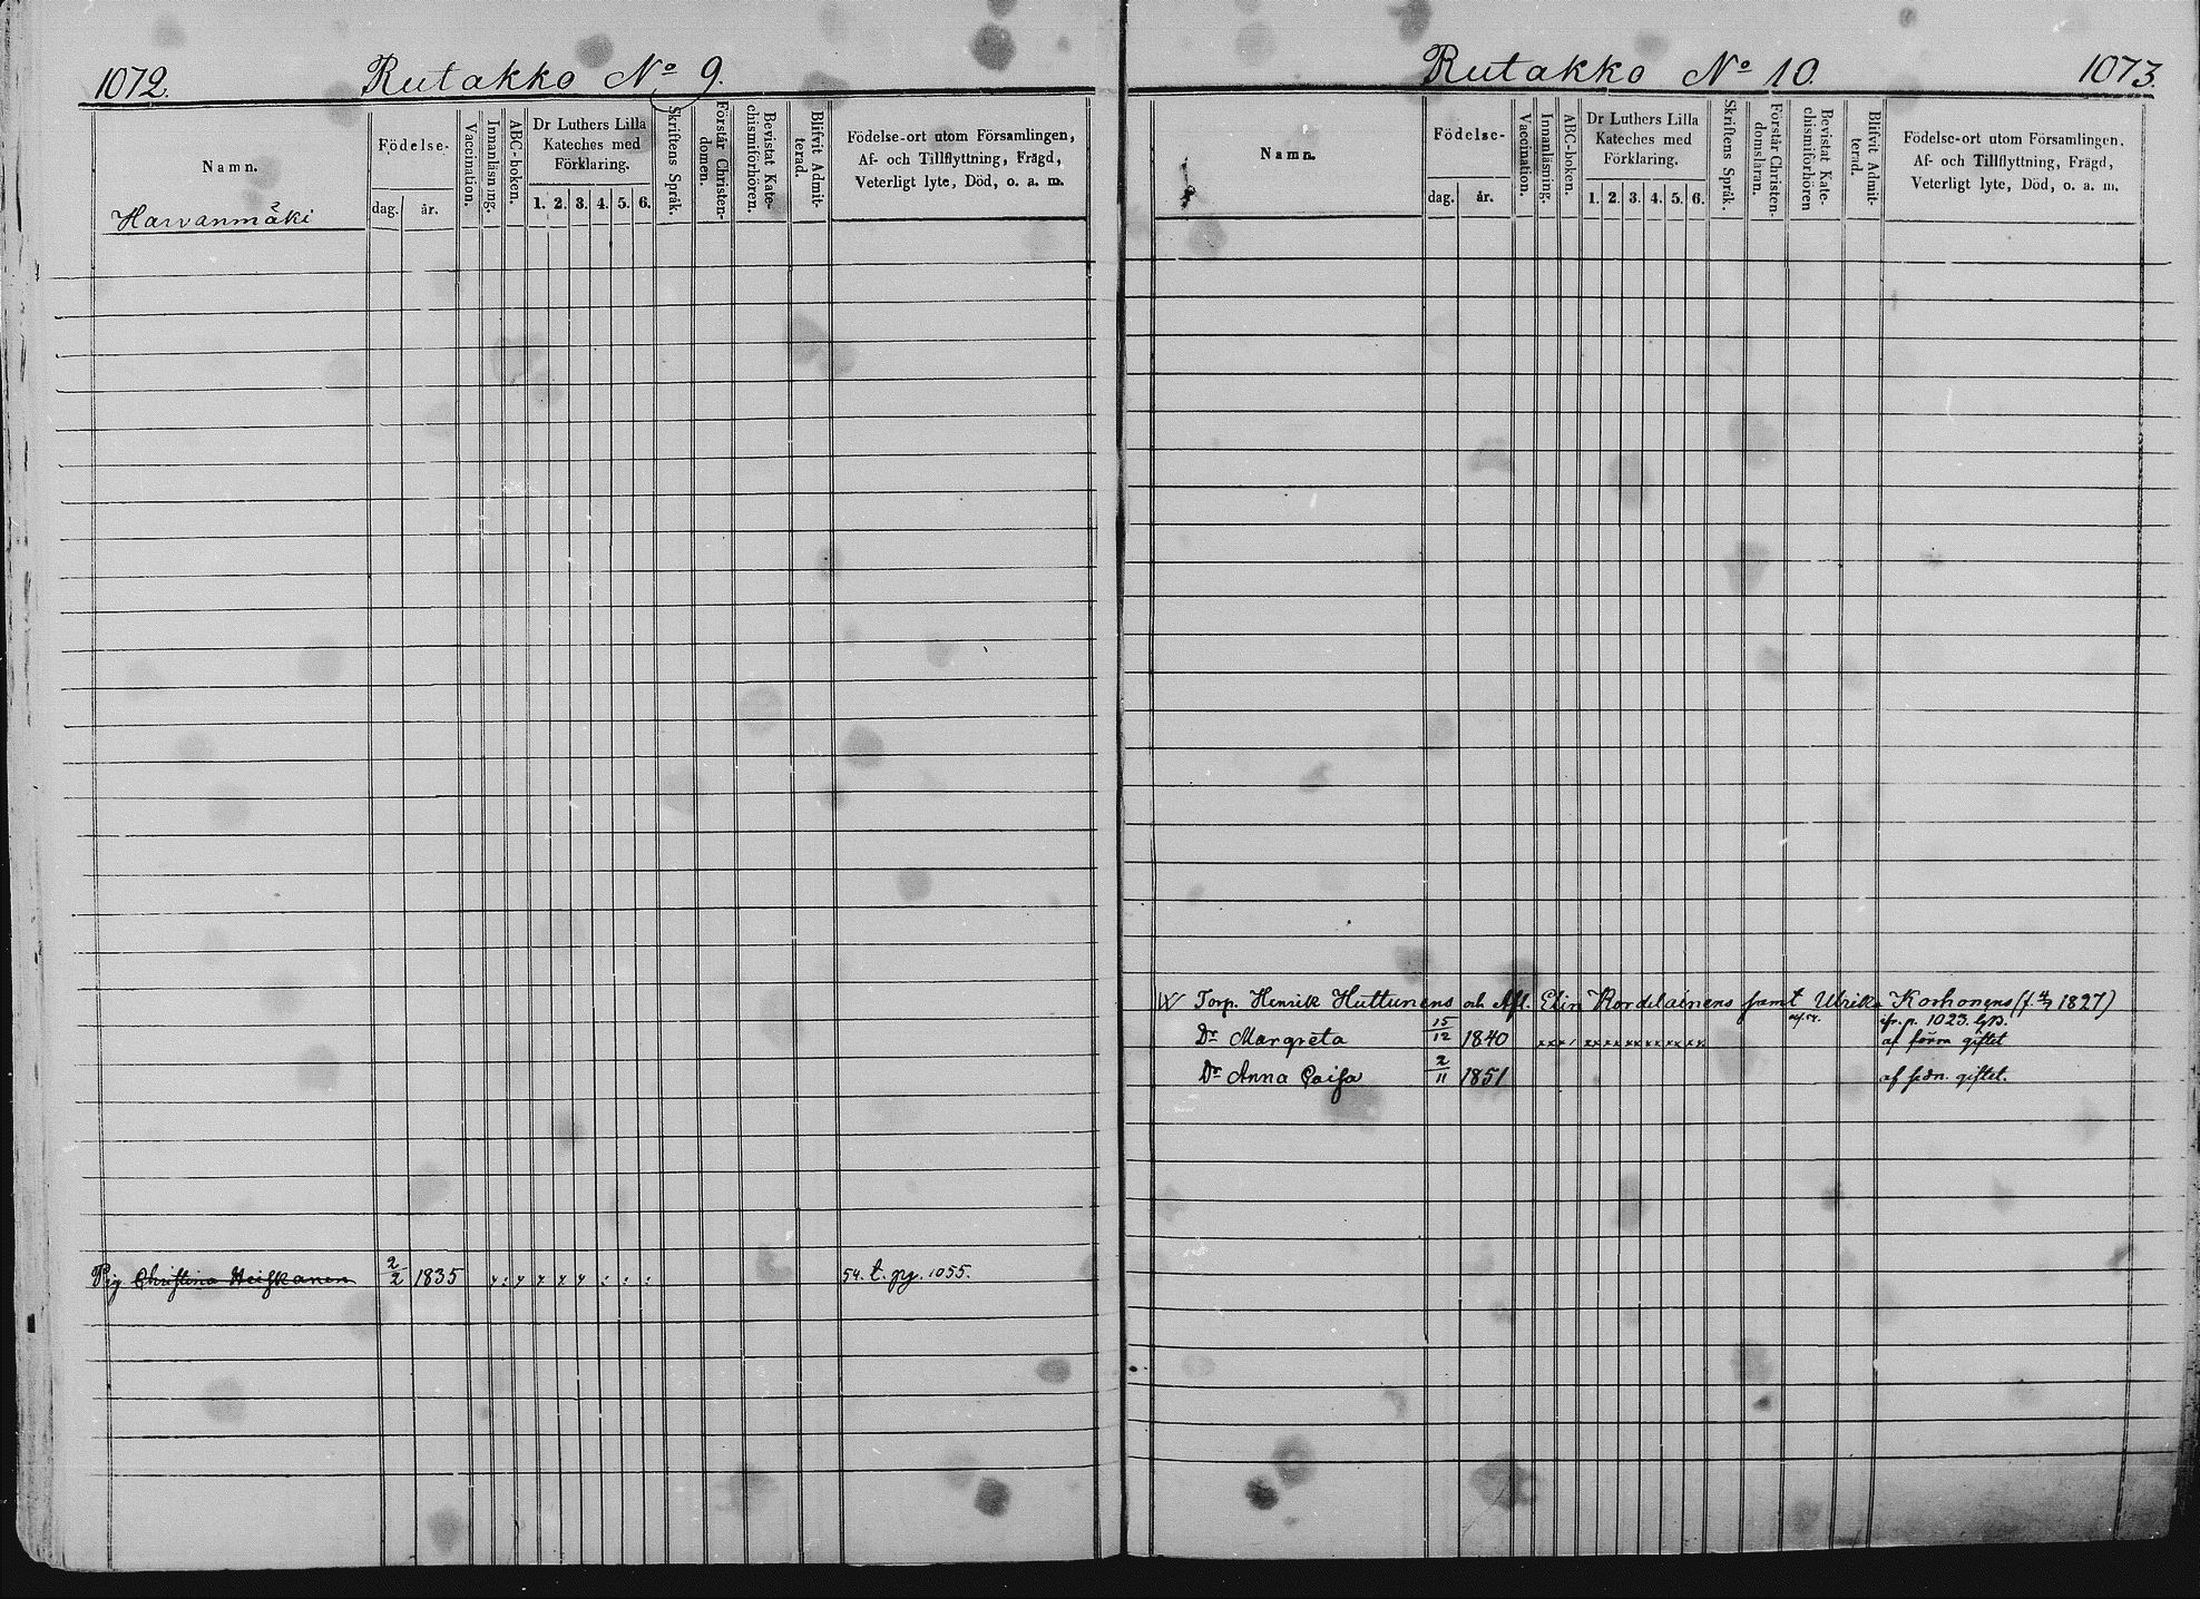 1072.
Rutakko No 9.
Namn.
Harvanmäki
Födelse-
dag. år.
Vaccination.
Innanläsning.
ABC-boken.
Dr Luthers Lilla
Kateches med
Förklaring.
1. 2. 3. 4. 5. 6.
Skriftens Språk.
Förstår Christen-
domen.
Bevistat Kate-
chismiförhören.
Blifvit Admit-
terad.
Födelse-ort utom Församlingen,
Af- och Tillflyttning, Frägd,
Veterligt lyte, Död, o. a. m.
Pig Christina Heiskanen 2/2 1835 54. t. pg. 1055.
Rutakko No 10.
1073.
Namn.
Födelse-
dag. år.
Vaccination.
Innanläsning.
ABC-boken.
Dr Luthers Lilla
Kateches med
Förklaring.
1. 2. 3. 4. 5. 6.
Skriftens Språk.
Förstår Christen-
domsläran.
Bevistat Kate-
chismiförhören
Blifvit Admit-
terad.
Födelse-ort utom Församlingen,
Af- och Tillflyttning, Frägd,
Veterligt lyte, Död, o. a. m.
Torp. Henrik Huttunens och Afl. Elin Kordelainens samt Ulrika Korhonens (f. 4/7 1827)
p. 1023.
Dr Margreta 15/12 1840 af förra giftet
Dr Anna Caisa 2/11 1851 af sedn. giftet.